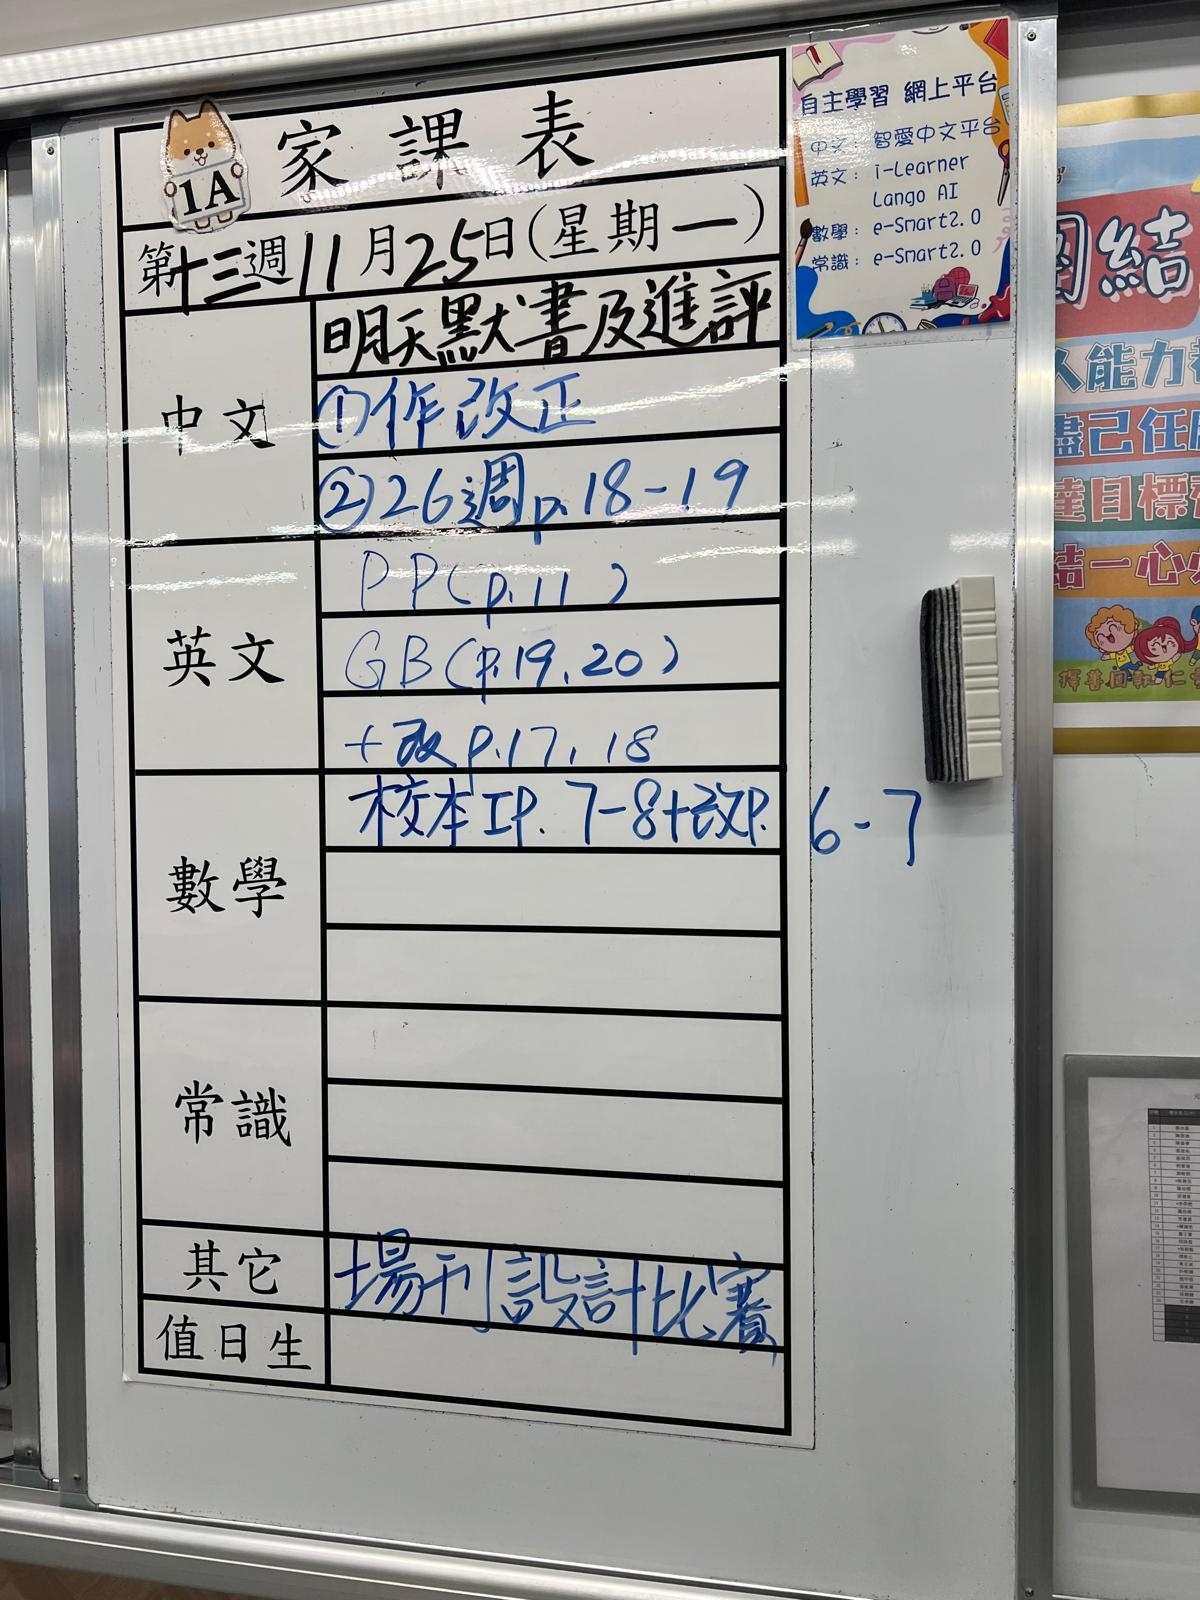 1A
家課表
第十三週11月25日(星期一)
中文
明天默書及進評
①作改正
②26週p.18-19
英文
PP(p.11)
GB(p.19,20)
+改p.17,18
數學
校本工P.7-8+改P.6-7
常識
其它
場刊設計比賽
值日生
自主學習 網上平台
中文:智愛中文平台
英文:i-Learner
Lango AI
數學:e-Smart2.0
常識:e-Smart2.0
團結
人能力
盡己任
達目標
結一心